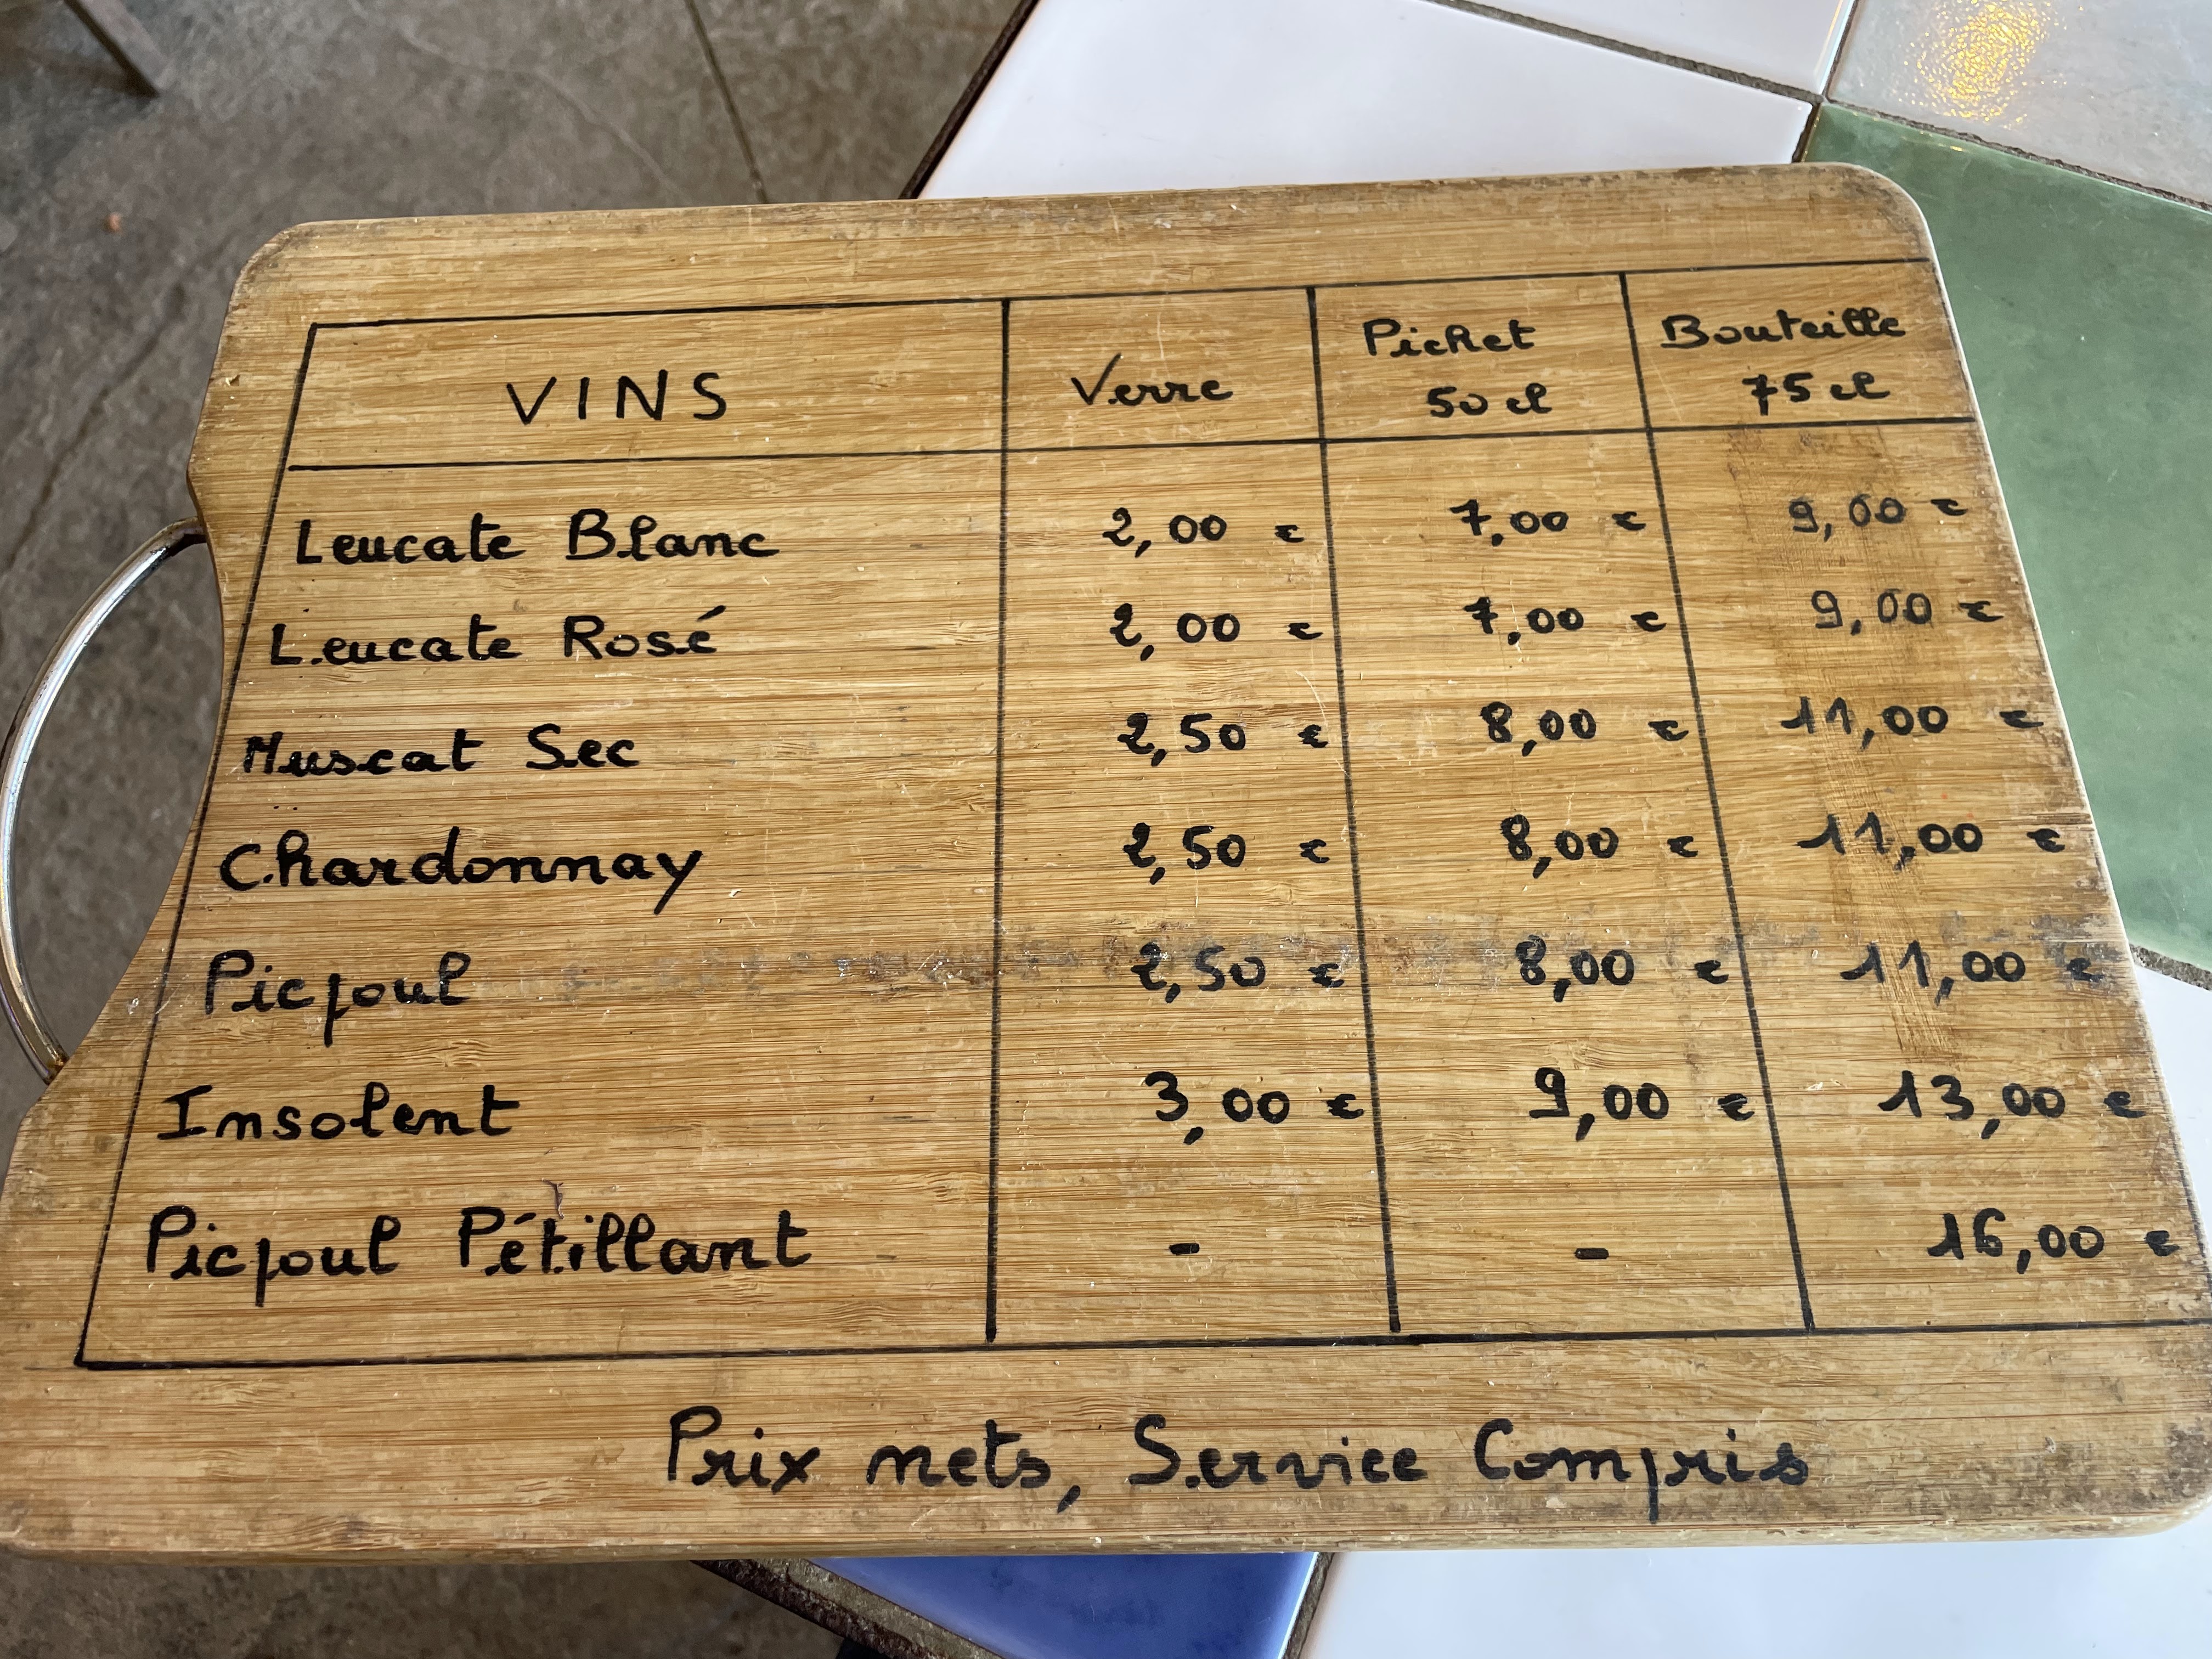 VINS Verre Pichet 50 cl Bouteille 75 cl
Leucate Blanc 2,00 € 7,00 € 9,00 €
Leucate Rosé 2,00 € 7,00 € 9,00 €
Muscat Sec 2,50 € 8,00 € 11,00 €
Chardonnay 2,50 € 8,00 € 11,00 €
Picpoul 2,50 € 8,00 € 11,00 €
Insolent 3,00 € 9,00 € 13,00 €
Picpoul Pétillant - - 16,00 €
Prix nets, Service Compris